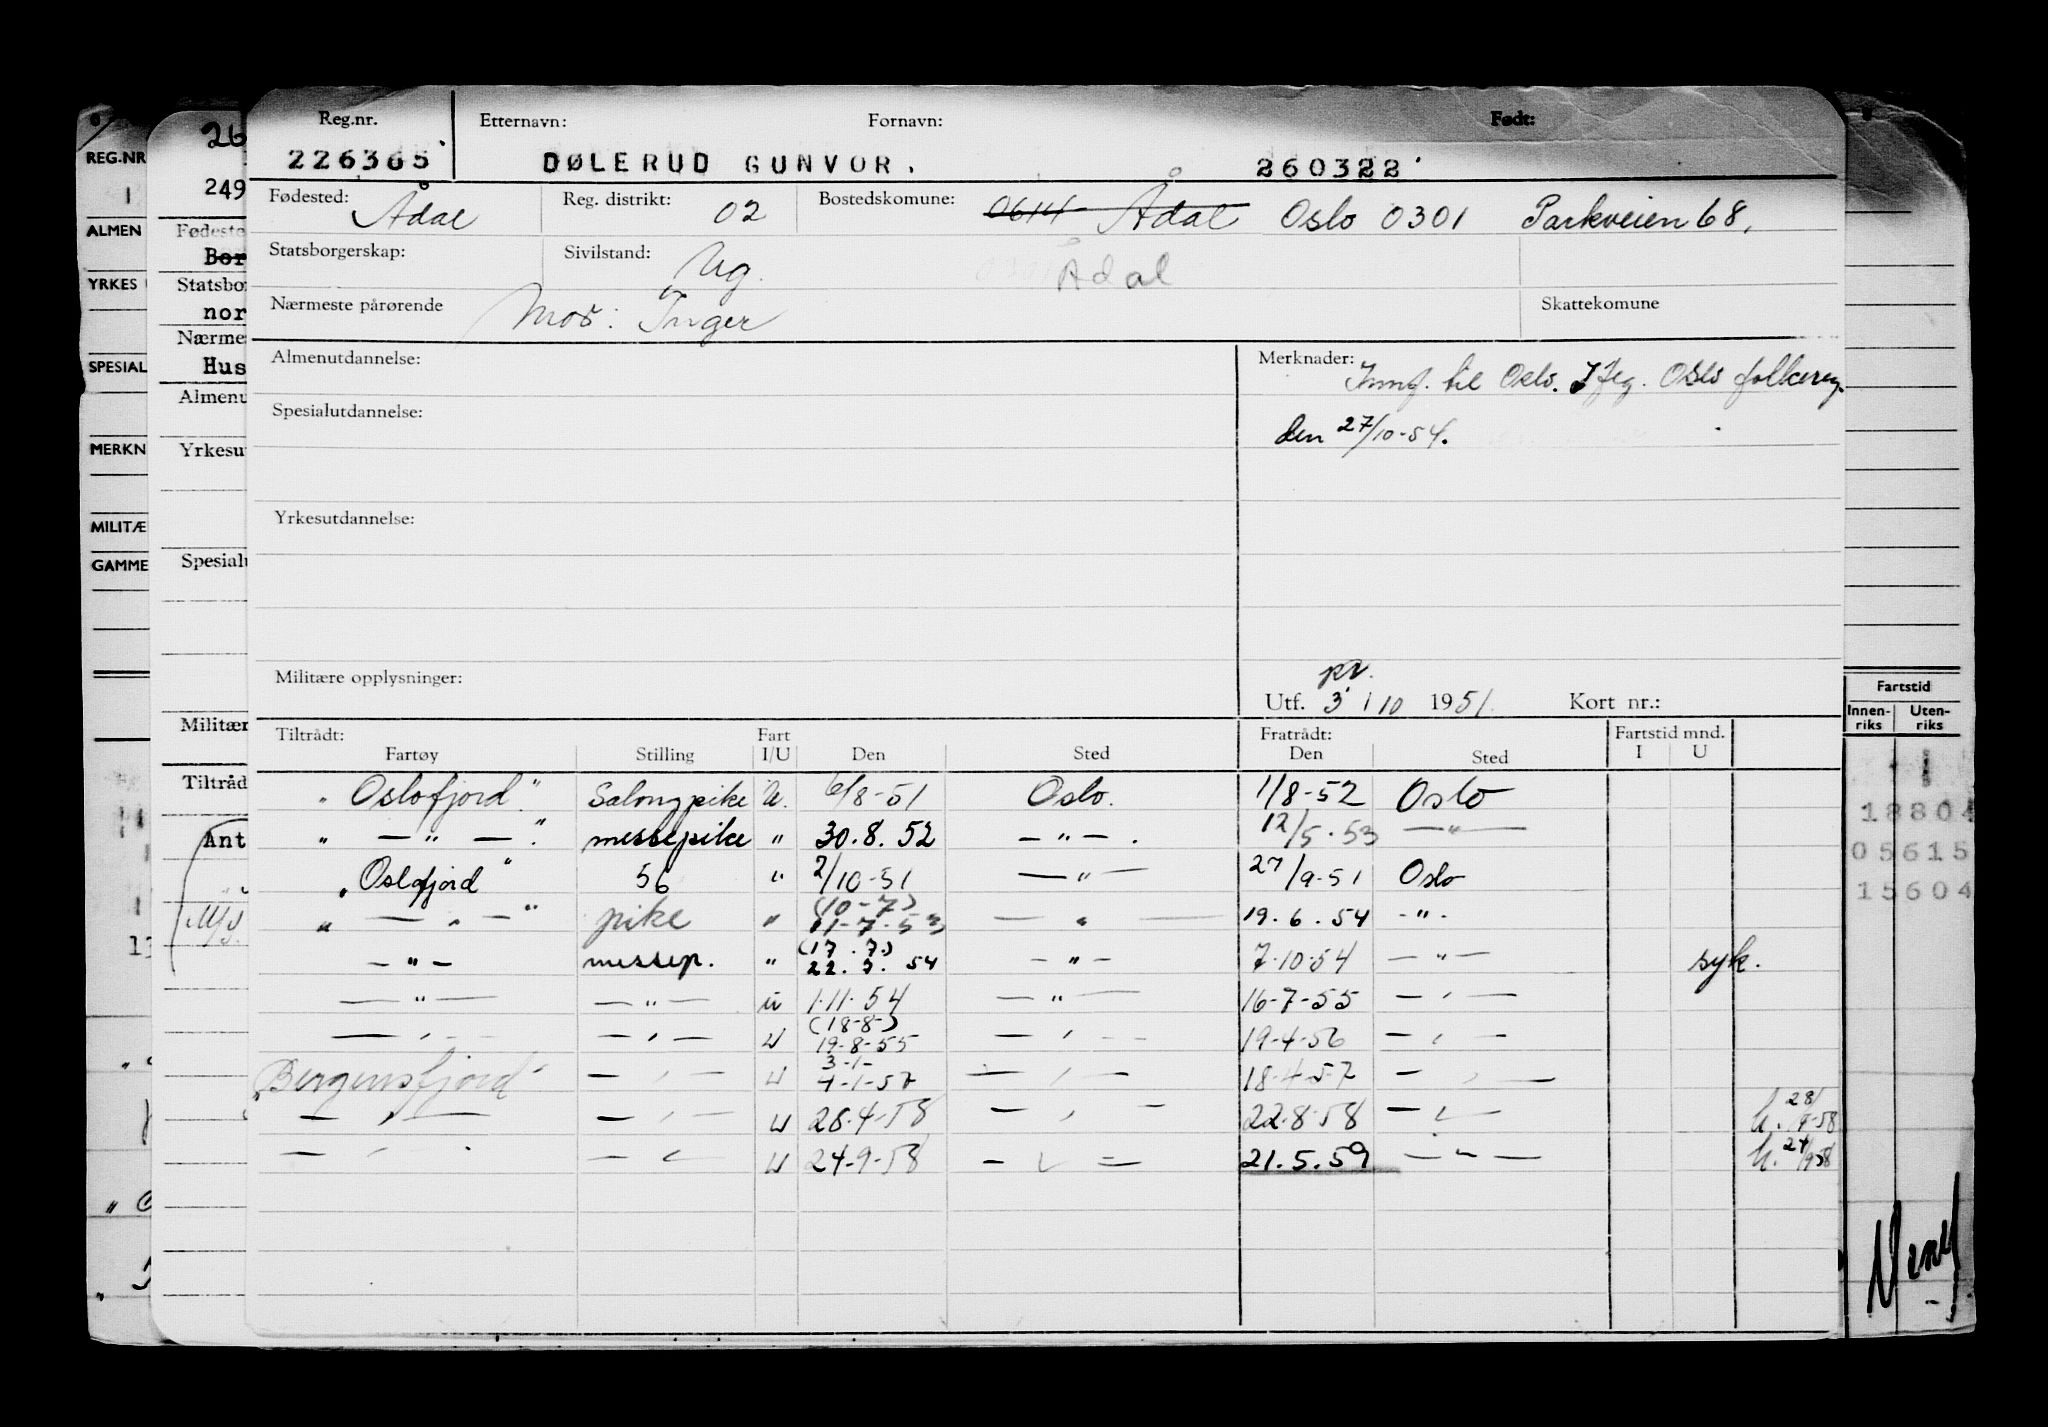 Reg.nr. Etternavn: Fornavn: Født:
226365 DØLERUD GUNVOR. 260322
Fødested: Ådal Reg. distrikt: 02 Bostedskomune: 0614 Ådal Oslo 0301 Parkveien 68,
Statsborgerskap: Sivilstand: Ug. Ådal
Nærmeste pårørende Mor: Inger Skattekomune
Almenutdannelse: Merknader: Innf. til Oslo. Iflg. Oslo folkereg.
Spesialutdannelse: den 27/10-54.
Yrkesutdannelse:
Militære opplysninger: pr.
Utf. 3 / 10 1951. Kort nr.:
Tiltrådt: Fart Fratrådt: Fartstid mnd.
Fartøy Stilling I/U Den Sted Den Sted I U
"Oslofjord" Salongpike U. 6/8-51 Oslo. 1/8-52 Oslo
" — " — ". messepike " 30.8.52 — " — . 12/5.53 — " —
"Oslofjord" 56 " 2/10-51 — " — 27/9-51 Oslo
" — " — " pike " (10-7) 11-7-53 — " — 19.6.54 - " -
— " — messep. " (17.7.) 22.7.54 — " — 7-10-54 — " — syk.
— " — — " — u 1.11.54 — " — 16-7-55 — " —
— " — — " — U (18-8-) 19-8-55 — " — 19-4-56 — " —
"Bergensfjord" — " — U 3-1- 4-1-57 — " — 18-4-57 — " —
— " — — " — U 28-4-58 — " — 22-8-58 — " — h. 28/9-58
— " — — " — U 24-9-58 — " — 21.5.59 — " — h. 24/9 58
REG.NR
1
ALMEN
YRKES
SPESIAL
MERKN
MILITÆ
GAMME
26
249
Fødeste
Bor
Statsbor
nor
Nærmes
Hus
Almenu
Yrkesut
Spesialu
Militær
Tiltråd
Ant
M/S.
Fartstid
Innen-riks Uten-riks
18804
05615
15604